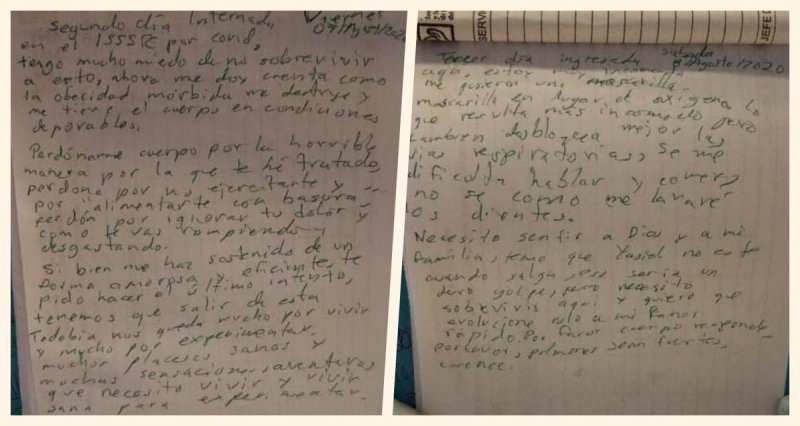 Segundo día Internada Viernes
en el ISSSTE por covid, 07/Agosto/2020
tengo mucho miedo de no sobrevivir
a esto, ahora me doy cuenta como
la obecidad mórbida me destruye y
me tiene el cuerpo en condiciones
deporables.
Perdóname cuerpo por la horrible
manera por la que te hé tratado,
perdona por no ejercitarte y
por alimentarte con basura,
perdón por ignorar tu dolor y
como te vas rompiendo y
desgastando.
Si bien me haz sostenido de un
forma amorosa y eficiente, te
pido hacer el último intento,
tenemos que salir de esta
Todobia nos queda mucho por vivir
y mucho por experimentar.
muchos placeres sanos y
muchas sensaciones, aventuras
que necesito vivir y vivir
sana para experimentar.
SERVI
JEFE D
Tercer día ingresada sábado
aquí, estoy muy 8/Agosto/2020
me pusieron una mascarilla.
mascarilla en lugar de oxigeno lo
que resulta más incomodo pero
tambien desbloquea mejor las
vias respiratorias, se me
dificulta hablar y comer,
no se como me lavaré
los dientes.
Necesito sentir a Dios y a mi
familia, temo que Yasiel no esté
cuando salga, ese sería un
duro golpe, pero necesito
sobrevivir aquí y quiero que
evolucione esto a mi favor
rápido. Por favor cuerpo responde,
por favor, pulmones sean fuertes,